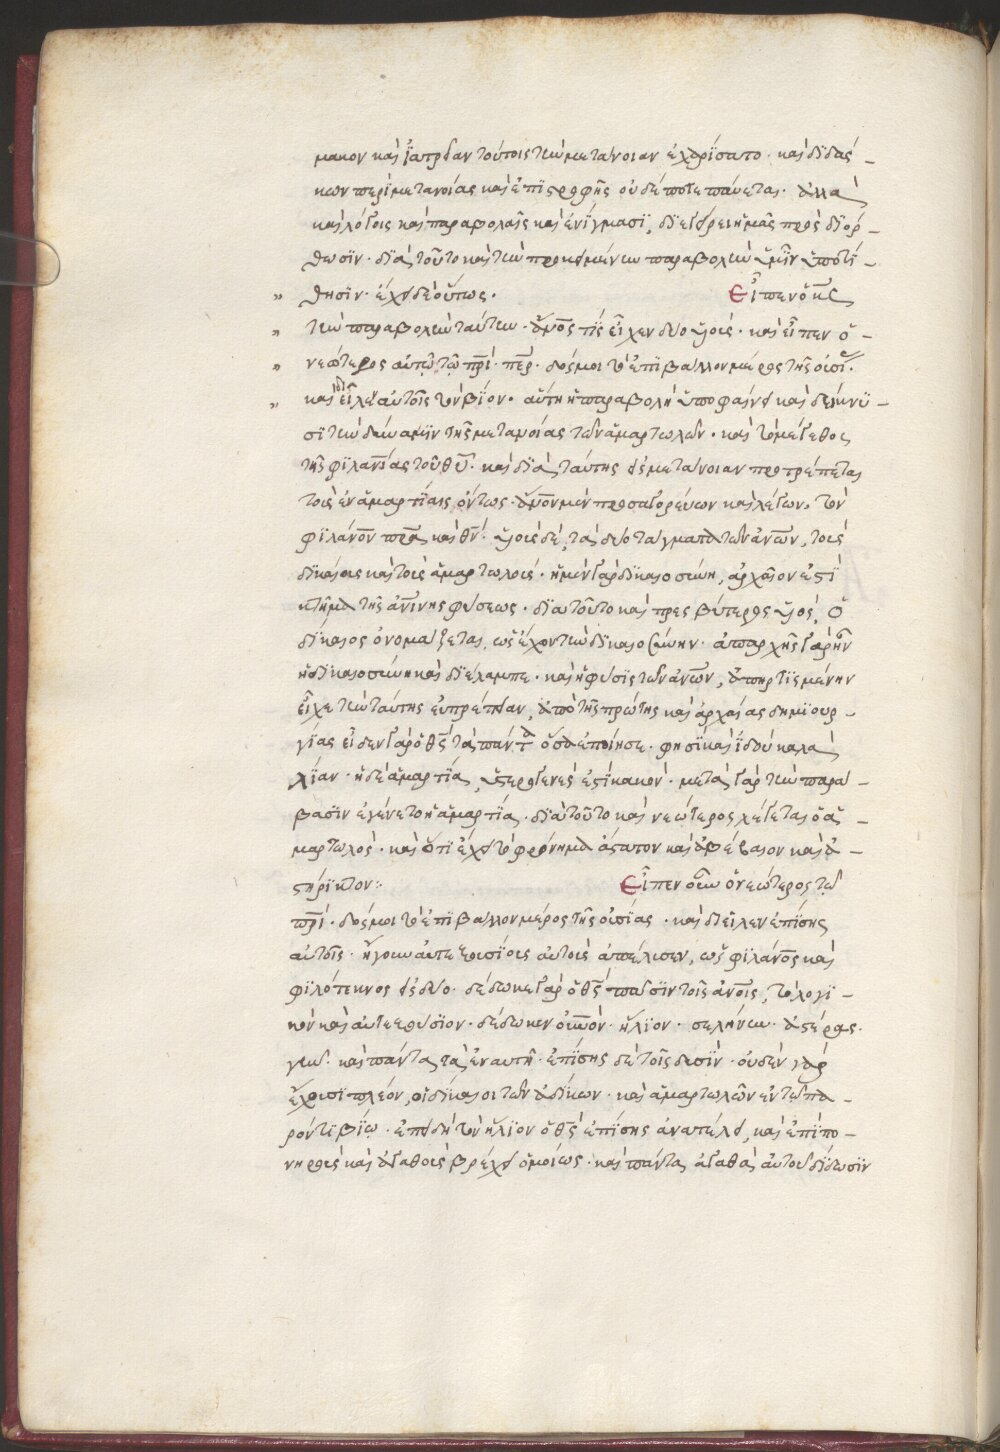 μακον καὶ ἰατρείαν τούτοις τὴν μετάνοιαν ἐχαρίσατο · καὶ διδάσ -
κων περὶ μετανοίας καὶ ἐπιστροφῆς οὐδέποτε παύεται · ἀλλὰ
καὶ λόγοις καὶ παραβολαῖς καὶ ἐνίγμασι, διεγείρει ἡμᾶς πρὸς διόρ -
θωσιν · διὰ τοῦτο καὶ τὴν προκειμένην παραβολὴν ὑμῖν ὑποτί -
" θησιν · ἔχει δὲ οὕτως · Εἶπεν ὁ κς
" τὴν παραβολὴν ταύτην · ἄνος τίς εἶχεν δύο υἱοὺς · καὶ εἶπεν ὁ -
" νεώτερος αὐτῶ τῶ πρι · περ · δός μοι τὸ ἐπιβάλλον μέρος τῆς οὐσί ·
" καὶ διεῖλεν αὐτοῖς τὸν βίον · αὕτη ἡ παραβολὴ ὑποφαίνει καὶ δεικνύ -
σι τὴν δύναμιν τῆς μετανοίας τῶν ἁμαρτωλῶν · καὶ τὸ μέγεθος
τῆς φιλανίας τοῦ θυ · καὶ διὰ ταύτης εἰς μετάνοιαν προτρέπεται
τοὺς ἐν ἁμαρτίαις ὄντας · ἄνον μὲν προσαγορεύων καὶ λέγων · τὸν
φιλάνον πρα καὶ θν · υἱοὺς δὲ, τὰ δύο τάγματα τῶν ἀνων, τοὺς
δικαίους καὶ τοὺς ἁμαρτωλοὺς · ἡ μὲν γὰρ δικαιοσύνη, ἀρχαῖον ἐστὶ
κτῆμα τῆς ἀνινης φύσεως · διὰ τοῦτο καὶ πρεσβύτερος υἱὸς, ὁ
δίκαιος ὀνομάζεται, ὡς ἔχων τὴν δικαιοσύνην · ἀπαρχῆς γὰρ ἦν
ἡ δικαιοσύνη καὶ διέλαμπε · καὶ ἡ φύσις τῶν ἀνων, ἀπηρτισμένην
εἶχε τὴν ταύτης εὐπρέπειαν, ἀπὸ τῆς πρώτης καὶ ἀρχαίας δημιουρ -
γίας εἶδεν γὰρ ὁ θς τὰ πάντα ὅσα ἐποίησε · φησὶ καὶ ἰδοὺ καλὰ
λίαν · ἡ δὲ ἁμαρτία, ὑστερογενὲς ἐστὶ κακόν · μετὰ γὰρ τὴν παρά -
βασιν ἐγένετο ἡ ἁμαρτία · διὰ τοῦτο καὶ νεώτερος λέγεται ὁ ἁ -
μαρτωλὸς · καὶ ὅτι ἔχει τὸ φρόνημα ἄστατον καὶ ἀβέβαιον καὶ ἀ -
στήρικτον : Εἶπεν οὖν ὁ νεώτερος τῶ
πρι · δός μοι τὸ ἐπιβάλλον μέρος τῆς οὐσίας · καὶ διεῖλεν ἐπίσης
αὐτοῖς · ἤγουν αὐτεξουσίους αὐτοὺς ἀπέλυσεν, ὡς φιλάνος καὶ
φιλότεκνος εἰς δύο · δέδωκε γὰρ ὁ θς πᾶσιν τοῖς ἀνοις, τὸ λογι -
κὸν καὶ αὐτεξούσιον · δέδωκεν οὐνον · ἥλιον · σελήνην · ἀστέρας ·
γῆν · καὶ πάντα τὰ ἐν αυτῆ · ἐπίσης δὲ τοῖς δυσίν · οὐδὲν γὰρ
ἔχουσι πλέον, οἱ δίκαιοι τῶν ἀδίκων · καὶ ἁμαρτωλῶν ἐν τῶ πα -
ρόντι βίω · ἐπειδὴ τὸν ἥλιον ὁ θς ἐπίσης ἀνατέλει, καὶ ἐπὶ πο -
νηροὺς καὶ ἀγαθοὺς βρέχει ὁμοίως · καὶ πάντα ἀγαθὰ αὐτοῦ δίδωσιν